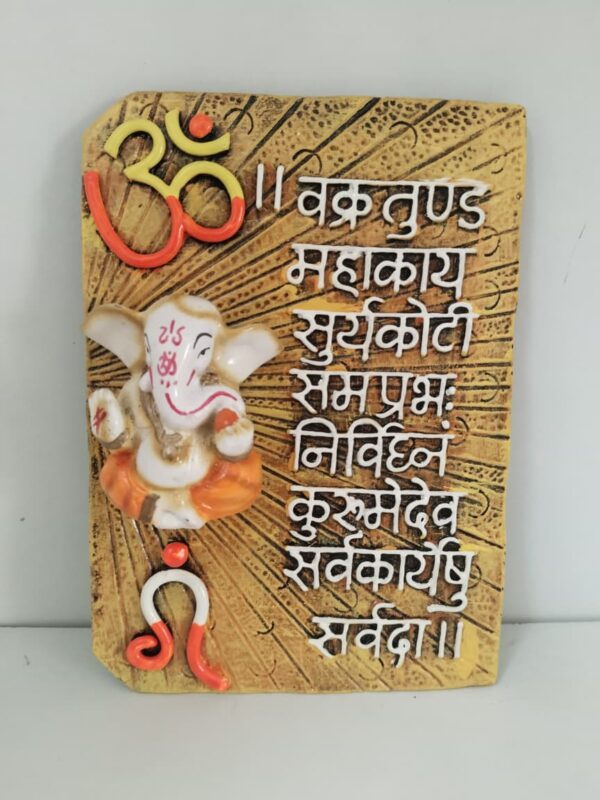 ॐ
|| वक्र तुण्ड
महाकाय
सुर्यकोटी
समप्रभः
निर्विघ्नं
कुरुमेदेव
सर्वकार्येषु
सर्वदा ||
गं